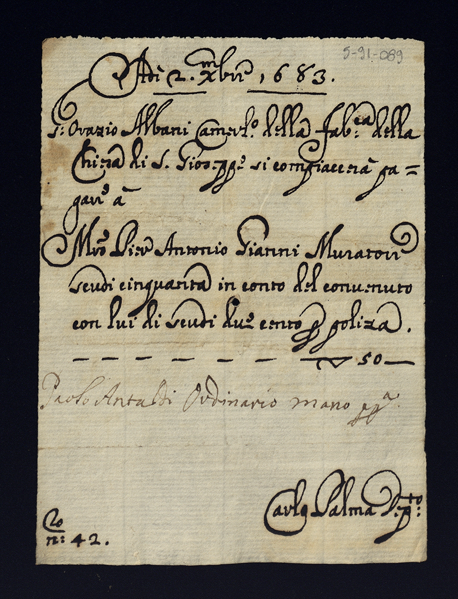 5-91-089
Adi 2. Xbre 1683.
S: Orazio Albani Camerlo. della Fabca. della
Chiesa di S. Gioseppe. si compiacerà pa=
gare à
Mro Pier Antonio Gianni Muratore
scudi cinquanta in conto del convenuto
con lui di scudi due cento p poliza.
50
Paolo Antaldi Ordinario mano ppa.
Carlo Palma
n: 42.